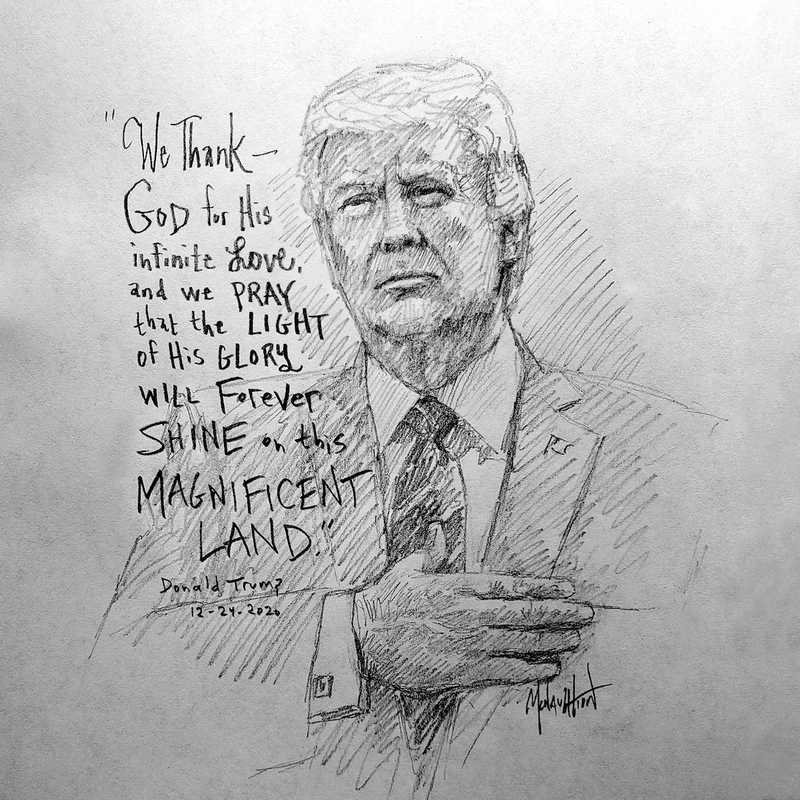 "We Thank—
GOD for His
infinite Love,
and we PRAY
that the LIGHT
of His GLORY
WILL Forever
SHINE on this
MAGNIFICENT
LAND."
Donald Trump
12-24-2020